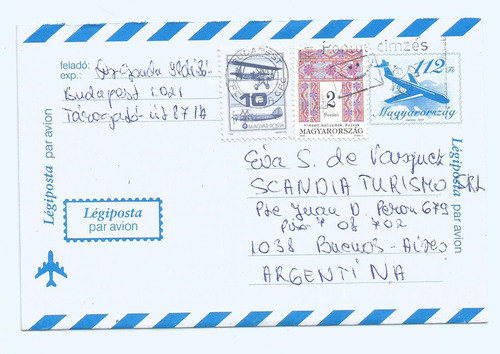 feladó:
exp.:
Budapest 1021
87/A
BUDAPEST
10 Ft
MAGYAR POSTA
2
Forint
MAGYARORSZÁG
Pontos címzés
112 Ft
Magyarország
Légiposta par avion
Légiposta
par avion
Éva S. de
SCANDIA TURISMO SRL
Pte Juan D. Peron 679
Piso 7 of 702
1038 Buenos-Aires
ARGENTÍNA
Légiposta par avion